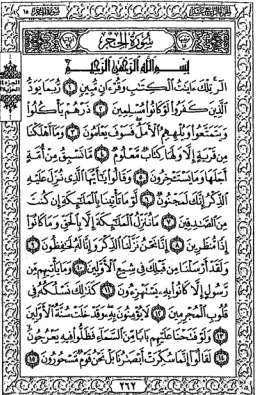 سُورَةُ الحِجْرِ
بِسْمِ اللَّهِ الرَّحْمَٰنِ الرَّحِيمِ
الٓر تِلْكَ ءَايَٰتُ الْكِتَٰبِ وَقُرْءَانٍ مُّبِينٍ ١ رُّبَمَا يَوَدُّ
الَّذِينَ كَفَرُوا لَوْ كَانُوا مُسْلِمِينَ ٢ ذَرْهُمْ يَأْكُلُوا
وَيَتَمَتَّعُوا وَيُلْهِهِمُ الْأَمَلُ فَسَوْفَ يَعْلَمُونَ ٣ وَمَا أَهْلَكْنَا
مِن قَرْيَةٍ إِلَّا وَلَهَا كِتَابٌ مَّعْلُومٌ ٤ مَّا تَسْبِقُ مِنْ أُمَّةٍ
أَجَلَهَا وَمَا يَسْتَـْٔخِرُونَ ٥ وَقَالُوا يَٰٓأَيُّهَا الَّذِي نُزِّلَ عَلَيْهِ
الذِّكْرُ إِنَّكَ لَمَجْنُونٌ ٦ لَّوْ مَا تَأْتِينَا بِالْمَلَٰٓئِكَةِ إِن كُنتَ
مِنَ الصَّٰدِقِينَ ٧ مَا نُنَزِّلُ الْمَلَٰٓئِكَةَ إِلَّا بِالْحَقِّ وَمَا كَانُوا
إِذًا مُّنظَرِينَ ٨ إِنَّا نَحْنُ نَزَّلْنَا الذِّكْرَ وَإِنَّا لَهُ لَحَٰفِظُونَ ٩
وَلَقَدْ أَرْسَلْنَا مِن قَبْلِكَ فِي شِيَعِ الْأَوَّلِينَ ١٠ وَمَا يَأْتِيهِم مِّن
رَّسُولٍ إِلَّا كَانُوا بِهِ يَسْتَهْزِءُونَ ١١ كَذَٰلِكَ نَسْلُكُهُ فِي
قُلُوبِ الْمُجْرِمِينَ ١٢ لَا يُؤْمِنُونَ بِهِ وَقَدْ خَلَتْ سُنَّةُ الْأَوَّلِينَ
١٣ وَلَوْ فَتَحْنَا عَلَيْهِم بَابًا مِّنَ السَّمَاءِ فَظَلُّوا فِيهِ يَعْرُجُونَ
١٤ لَقَالُوا إِنَّمَا سُكِّرَتْ أَبْصَٰرُنَا بَلْ نَحْنُ قَوْمٌ مَّسْحُورُونَ ١٥
٢٦٢